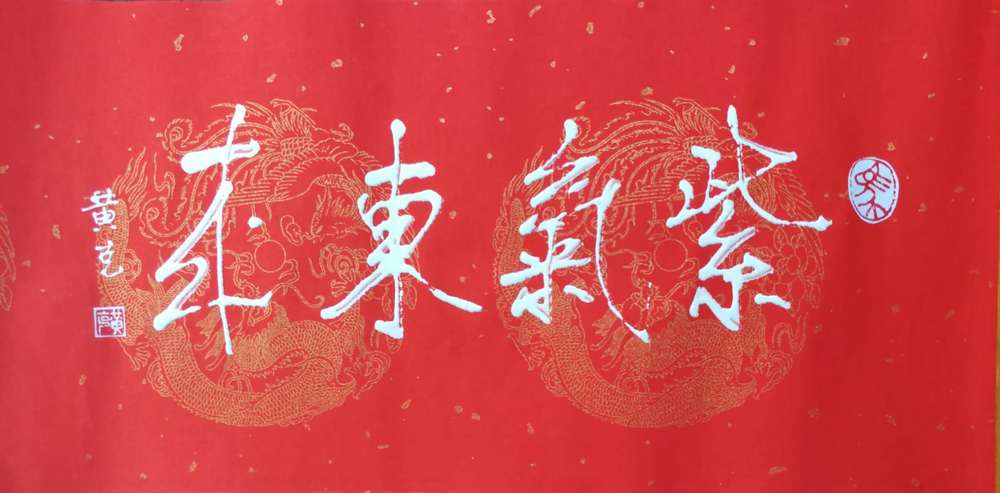 紫氣東來
黄克